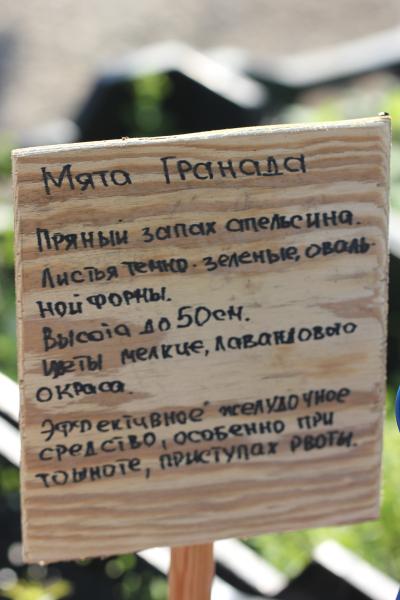 Мята Гранада
Пряный запах апельсина.
Листья темно-зеленые, оваль-
ной формы.
Высота до 50см.
Цветы мелкие, лавандового
окраса.
Эффективное желудочное
средство, особенно при
тошноте, приступах рвоты.